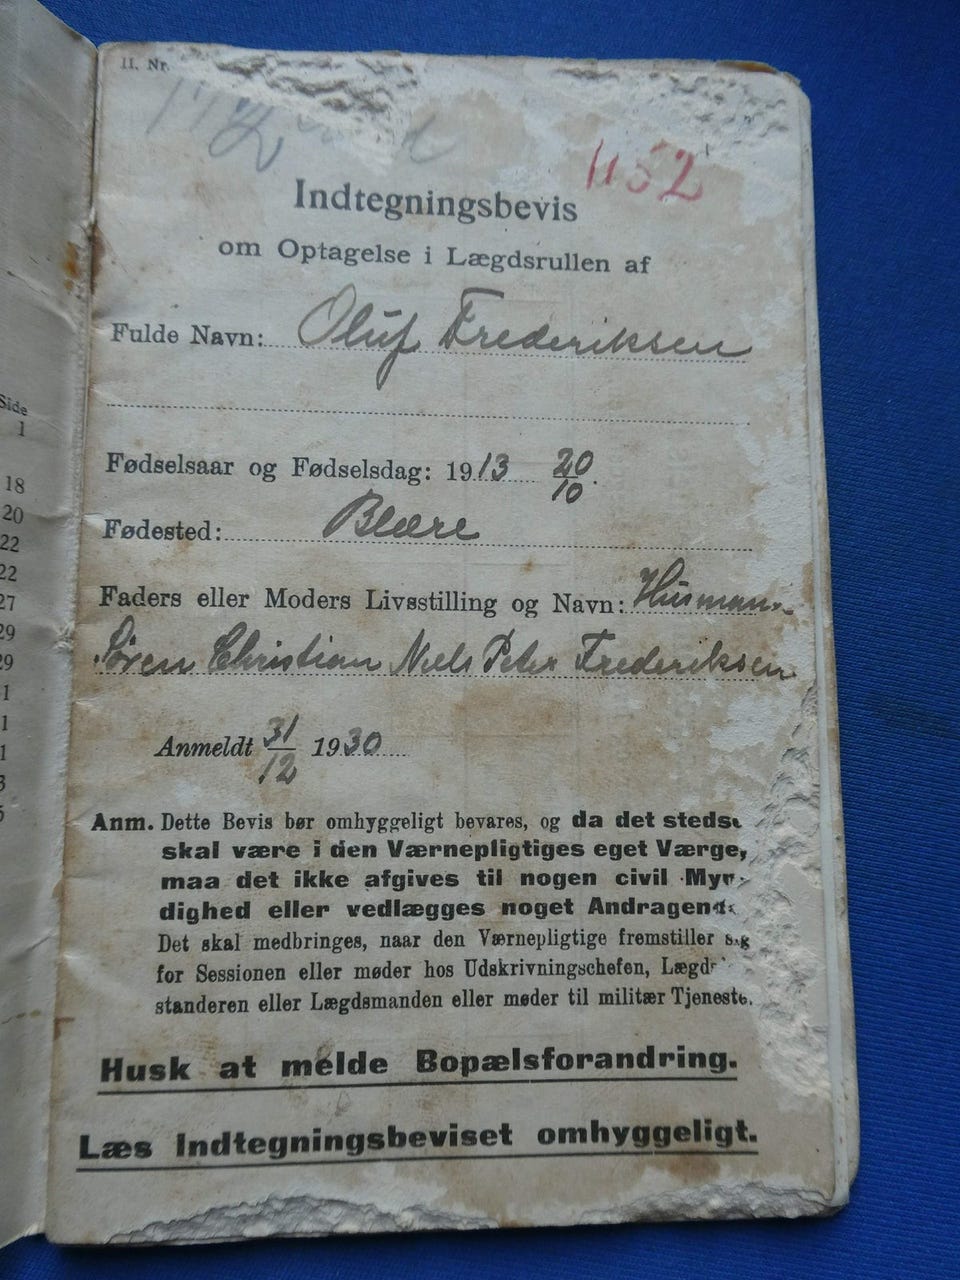 Side
1
18
20
22
22
27
29
29
1
1
1
3
5
II. Nr.
1152
Indtegningsbevis
om Optagelse i Lægdsrullen af
Fulde Navn: Oluf Frederiksen
Fødselsaar og Fødselsdag: 1913 20/10.
Fødested: Blære
Faders eller Moders Livsstilling og Navn: Husmand
Søren Christian Niels Peter Frederiksen
Anmeldt 31/12 1930
Anm. Dette Bevis bør omhyggeligt bevares, og da det stedse
skal være i den Værnepligtiges eget Værge,
maa det ikke afgives til nogen civil Myn-
dighed eller vedlægges noget Andragende.
Det skal medbringes, naar den Værnepligtige fremstiller sig
for Sessionen eller møder hos Udskrivningschefen, Lægds
standeren eller Lægdsmanden eller møder til militær Tjeneste.
Husk at melde Bopælsforandring.
Læs Indtegningsbeviset omhyggeligt.